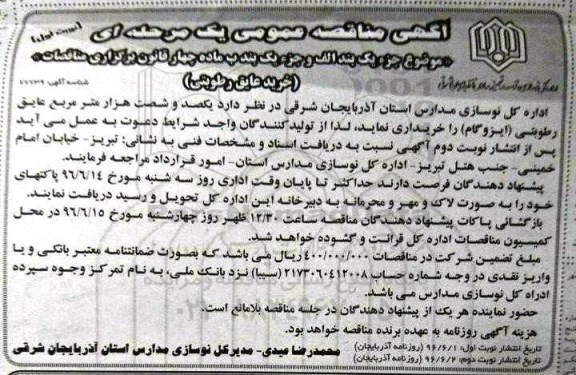 (نوبت اول)
آگهی مناقصه عمومی یک مرحله ای
«موضوع جزء یک بند الف و جزء یک بند ب ماده چهار قانون برگزاری مناقصات»
(خرید عایق رطوبتی)
شناسه آگهی: ۷۷۷۳۹
اداره کل نوسازی مدارس استان آذربایجان شرقی در نظر دارد یکصد و شصت هزار متر مربع عایق
رطوبتی (ایزوگام) را خریداری نماید، لذا از تولیدکنندگان واجد شرایط دعوت به عمل می آید
پس از انتشار نوبت دوم آگهی نسبت به دریافت اسناد و مشخصات فنی به نشانی: تبریز- خیابان امام
خمینی- جنب هتل تبریز- اداره کل نوسازی مدارس استان- امور قرارداد مراجعه فرمایند.
پیشنهاد دهندگان فرصت دارند حداکثر تا پایان وقت اداری روز سه شنبه مورخ ۹۶/۶/۱۴ پاکتهای
خود را به صورت لاک و مهر و محرمانه به دبیرخانه این اداره کل تحویل و رسید دریافت نمایند.
بازگشائی پاکات پیشنهاد دهندگان مناقصه ساعت ۱۲/۳۰ ظهر روز چهارشنبه مورخ ۹۶/۶/۱۵ در محل
کمیسیون مناقصات اداره کل قرائت و گشوده خواهد شد.
مبلغ تضمین شرکت در مناقصات ۴۰۰/۰۰۰/۰۰۰ ریال می باشد که بصورت ضمانتنامه معتبر بانکی و یا
واریز نقدی در وجه شماره حساب ۲۱۷۳۰۶۰۴۱۲۰۰۸ (سیبا) نزد بانک ملی، به نام تمرکز وجوه سپرده
ادراه کل نوسازی مدارس می باشد.
حضور نماینده هر یک از پیشنهاد دهندگان در جلسه مناقصه بلامانع است.
هزینه آگهی روزنامه به عهده برنده مناقصه خواهد بود.
تاریخ انتشار نوبت اول: ۹۶/۶/۱ (روزنامه آذربایجان)
تاریخ انتشار نوبت دوم: ۹۶/۶/۲ (روزنامه آذربایجان)
محمدرضا عیدی- مدیرکل نوسازی مدارس استان آذربایجان شرقی